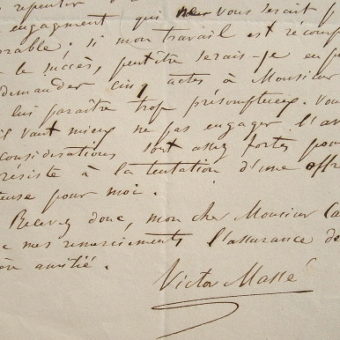 repentir
engagement qui ne vous serait p
orable; si mon travail est recomp
le succès, peut être serais-je en p
demander cinq actes à Monsieur
lui paraître trop présomptueux. Vou
il vaut mieux ne pas engager l'av
considérations sont assez fortes pou
résiste à la tentation d'une offr
teuse pour moi.
Recevez donc, mon cher Monsieur Ca
c mes remerciements l'assurance de
ère amitié.
Victor Massé